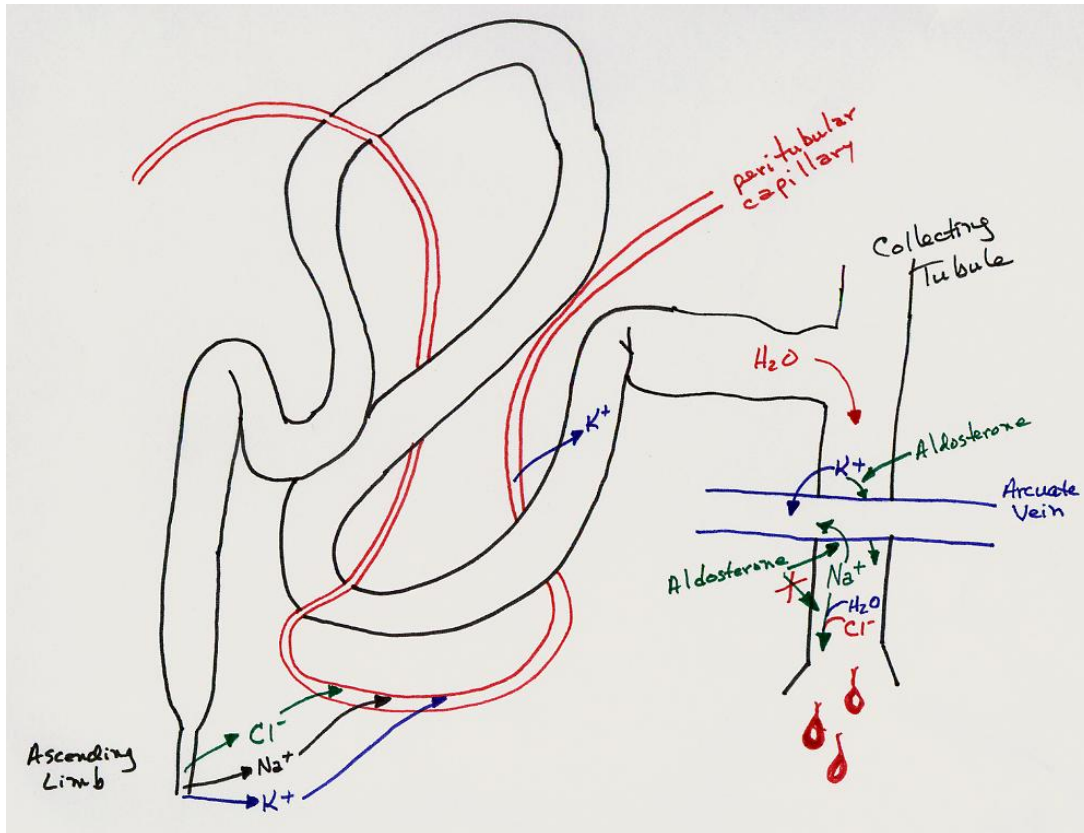 peritubular
capillary
Collecting
Tubule
H₂O
K⁺
K⁺
Aldosterone
Arcuate
Vein
Aldosterone
Na⁺
H₂O
Cl⁻
Cl⁻
Na⁺
K⁺
Ascending
Limb